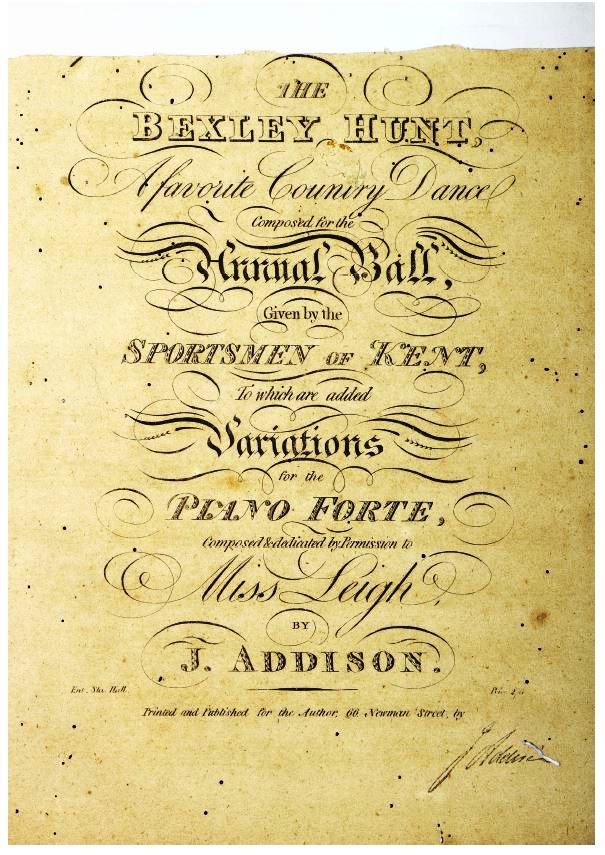 THE
BEXLEY HUNT,
A favorite Country Dance
Composed for the
Annual Ball,
Given by the
SPORTSMEN OF KENT,
To which are added
Variations
for the
PIANO FORTE,
Composed & dedicated by Permission to
Miss Leigh,
BY
J. ADDISON.
Ent. Sta. Hall.
Printed and Published for the Author, 66 Newman Street, by
J Addison